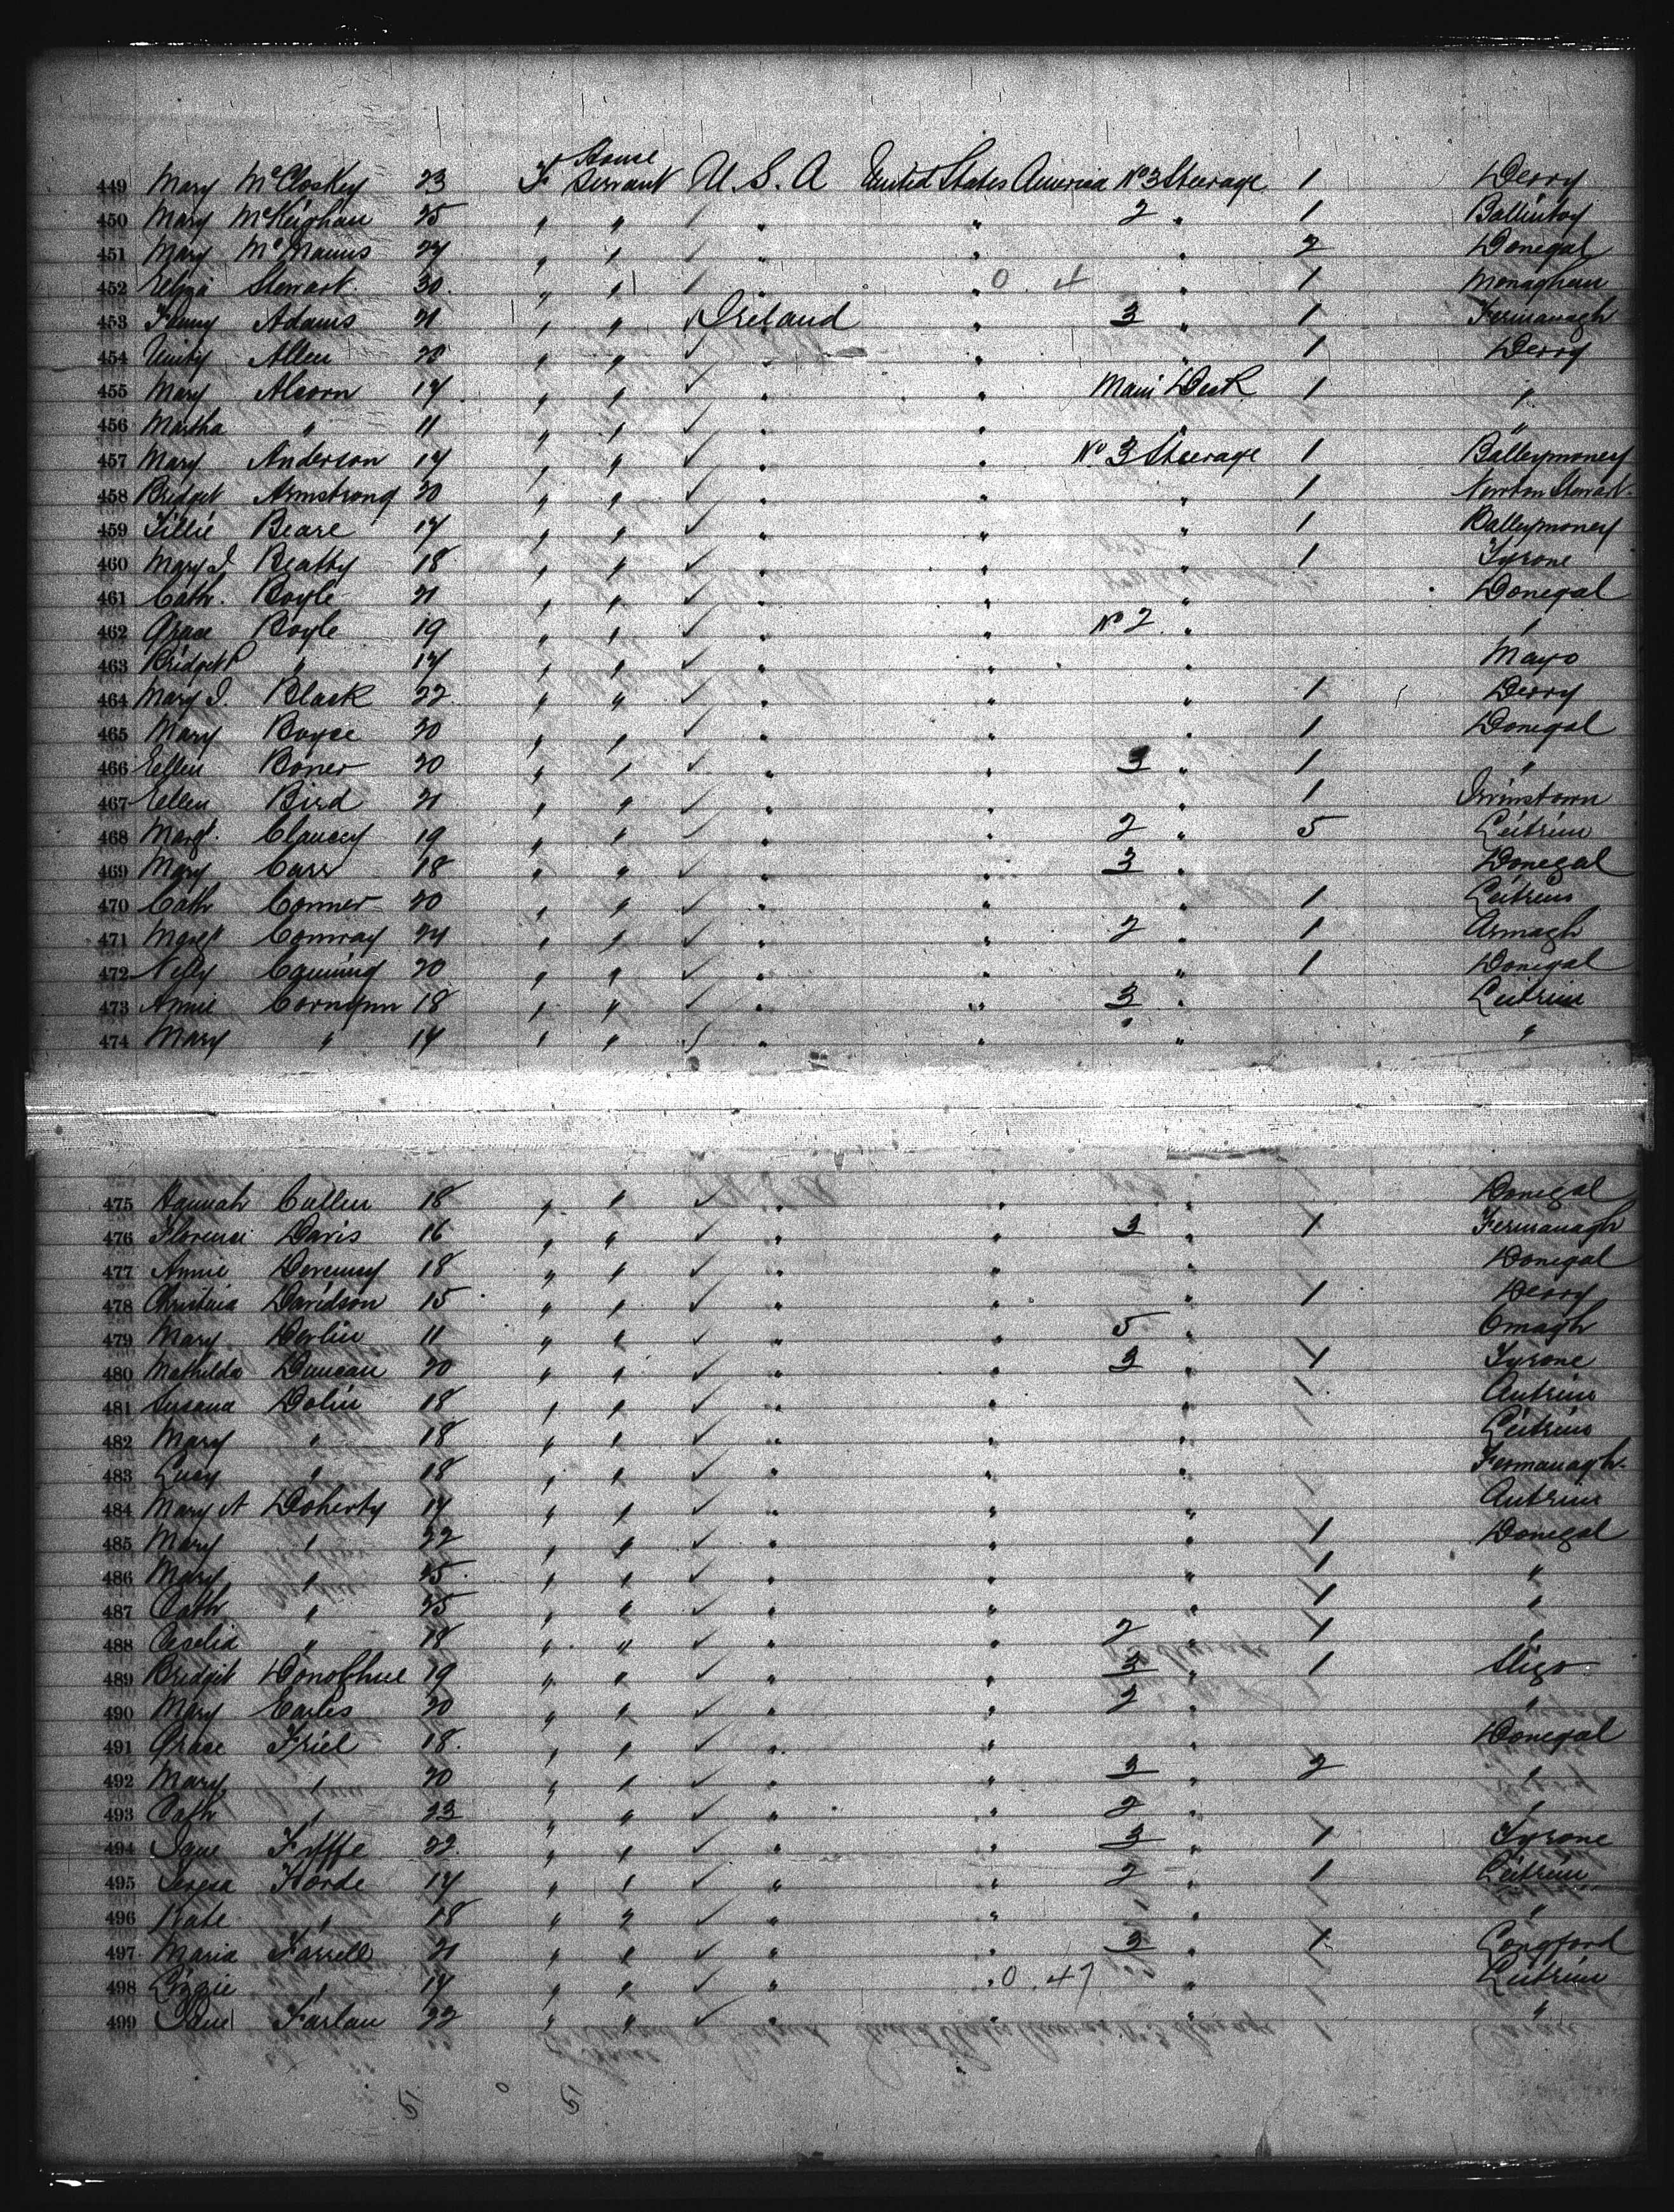 House
449 Mary McCloskey 23 F Servant U.S.A United States America No 3 Steerage 1 Derry
450 Mary McKeighan 25 " " " " 2 " 1 Ballintoy
451 Mary McManus 24 " " " " " 2 Donegal
452 Eliza Stewart 30 " " " " " 1 Monaghan
453 Adams 21 " " Ireland " 3 " 1 Fermanagh
454 Unity Allen 20 " " " " " 1 Derry
455 Mary Alcorn 17 " " " " Main Deck 1 "
456 Martha " 11 " " " " " "
457 Mary Anderson 17 " " " " No 3 Steerage 1 Ballymoney
458 Bridget Armstrong 20 " " " " " 1 Newton Stewart
459 Tillie Beare 17 " " " " " 1 Ballymoney
460 Mary J. Beatty 18 " " " " " 1 Tyrone
461 Cath. Boyle 21 " " " " " Donegal
462 Grace Boyle 19 " " " " No 2 " "
463 Bridget " 17 " " " " " Mayo
464 Mary J. Black 22 " " " " " 1 Derry
465 Mary Boyce 20 " " " " " 1 Donegal
466 Ellen Boner 20 " " " " 3 " 1 "
467 Ellen Bird 21 " " " " " 1 Irvinstown
468 Margt. Clancey 19 " " " " 2 " 5 Leitrim
469 Mary Carr 18 " " " " 3 " Donegal
470 Cath Conner 20 " " " " " 1 Leitrim
471 Margt Conway 24 " " " " 2 " 1 Armagh
472 Nelly Canning 20 " " " " " 1 Donegal
473 Annie Cornynn 18 " " " " 3 " Leitrim
474 Mary " 17 " " " " " " "
475 Hannah Cullen 18 " " " " " Donegal
476 Florence Davis 16 " " " " 3 " 1 Fermanagh
477 Annie Devenny 18 " " " " " Donegal
478 Christina Davidson 15 " " " " " 1 Derry
479 Mary Devlin 11 " " " " 5 " Omagh
480 Mathilda Duncan 20 " " " " 3 " 1 Tyrone
481 Susana Dolin 18 " " " " " Antrim
482 Mary " 18 " " " " " Leitrim
483 Lucy " 18 " " " " " Fermanagh
484 Mary A Doherty 17 " " " " " Antrim
485 Mary " 22 " " " " " 1 Donegal
486 Mary " 25 " " " " " 1 "
487 Cath " 25 " " " " " 1 "
488 Ceselia " 18 " " " " 2 " 1 "
489 Bridgit Donobhue 19 " " " " 3 " 1 Sligo
490 Mary Earles 20 " " " " 2 " "
491 Grace Friel 18 " " " " " Donegal
492 Mary " 20 " " " " 3 " 2 "
493 Cath " 23 " " " " 2 " "
494 Jane Fyffe 22 " " " " 3 " 1 Tyrone
495 Teresa Forde 17 " " " " 2 " 1 Leitrim
496 Kate " 18 " " " " " "
497 Maria Farrell 21 " " " " 3 " 1 Longford
498 Lizzie " 17 " " " " " Leitrim
499 Jane Farlan 22 " " " " " "